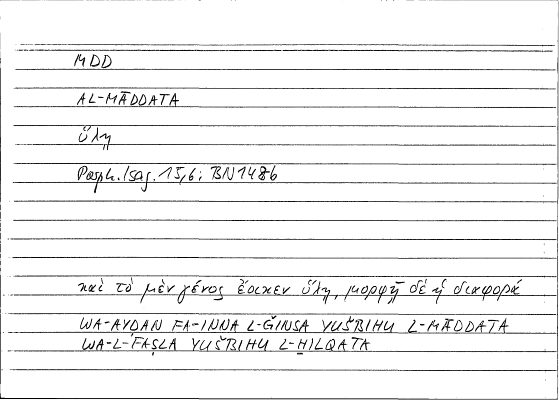 MDD
AL-MĀDDATA
ὕλη
Porph. Isag. 15,6; BN148b
καὶ τὸ μὲν γένος ἔοικεν ὕλῃ, μορφῇ δὲ ἡ διαφορά
WA-AYḌAN FA-INNA L-ǦINSA YUŠBIHU L-MĀDDATA
WA-L-FAṢLA YUŠBIHU L-H̱ILQATA